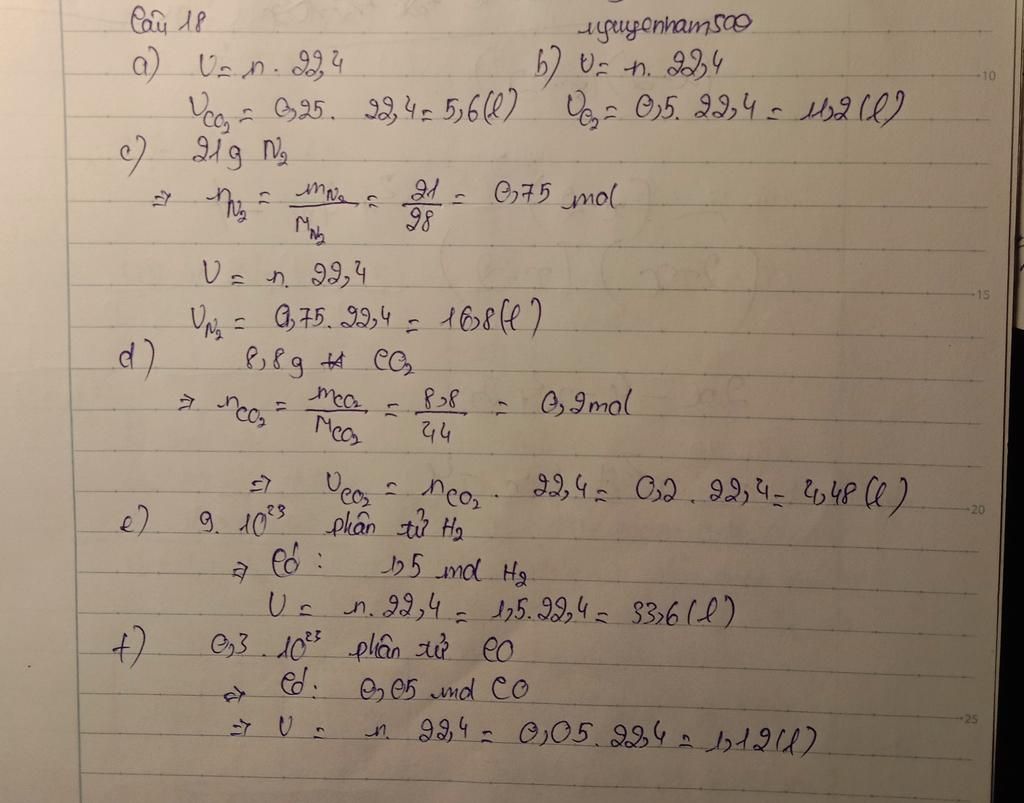 Câu 18 nguyenham500
a) V = n. 22,4 b) V = n. 22,4
V_CO₂ = 0,25. 22,4 = 5,6(l) V_O₂ = 0,5. 22,4 = 11,2(l)
c) 21g N₂
⇒ n_N₂ = m_N₂/M_N₂ = 21/28 = 0,75 mol
V = n. 22,4
V_N₂ = 0,75. 22,4 = 16,8(l)
d) 8,8g CO₂
⇒ n_CO₂ = m_CO₂/M_CO₂ = 8,8/44 = 0,2mol
⇒ V_CO₂ = n_CO₂. 22,4 = 0,2. 22,4 = 4,48(l)
20
e) 9. 10²³ phân tử H₂
⇒ Có: 1,5 mol H₂
V = n. 22,4 = 1,5. 22,4 = 33,6(l)
f) 0,3. 10²³ phân tử CO
⇒ Có: 0,05 mol CO
25
⇒ V = n. 22,4 = 0,05. 22,4 = 1,12(l)